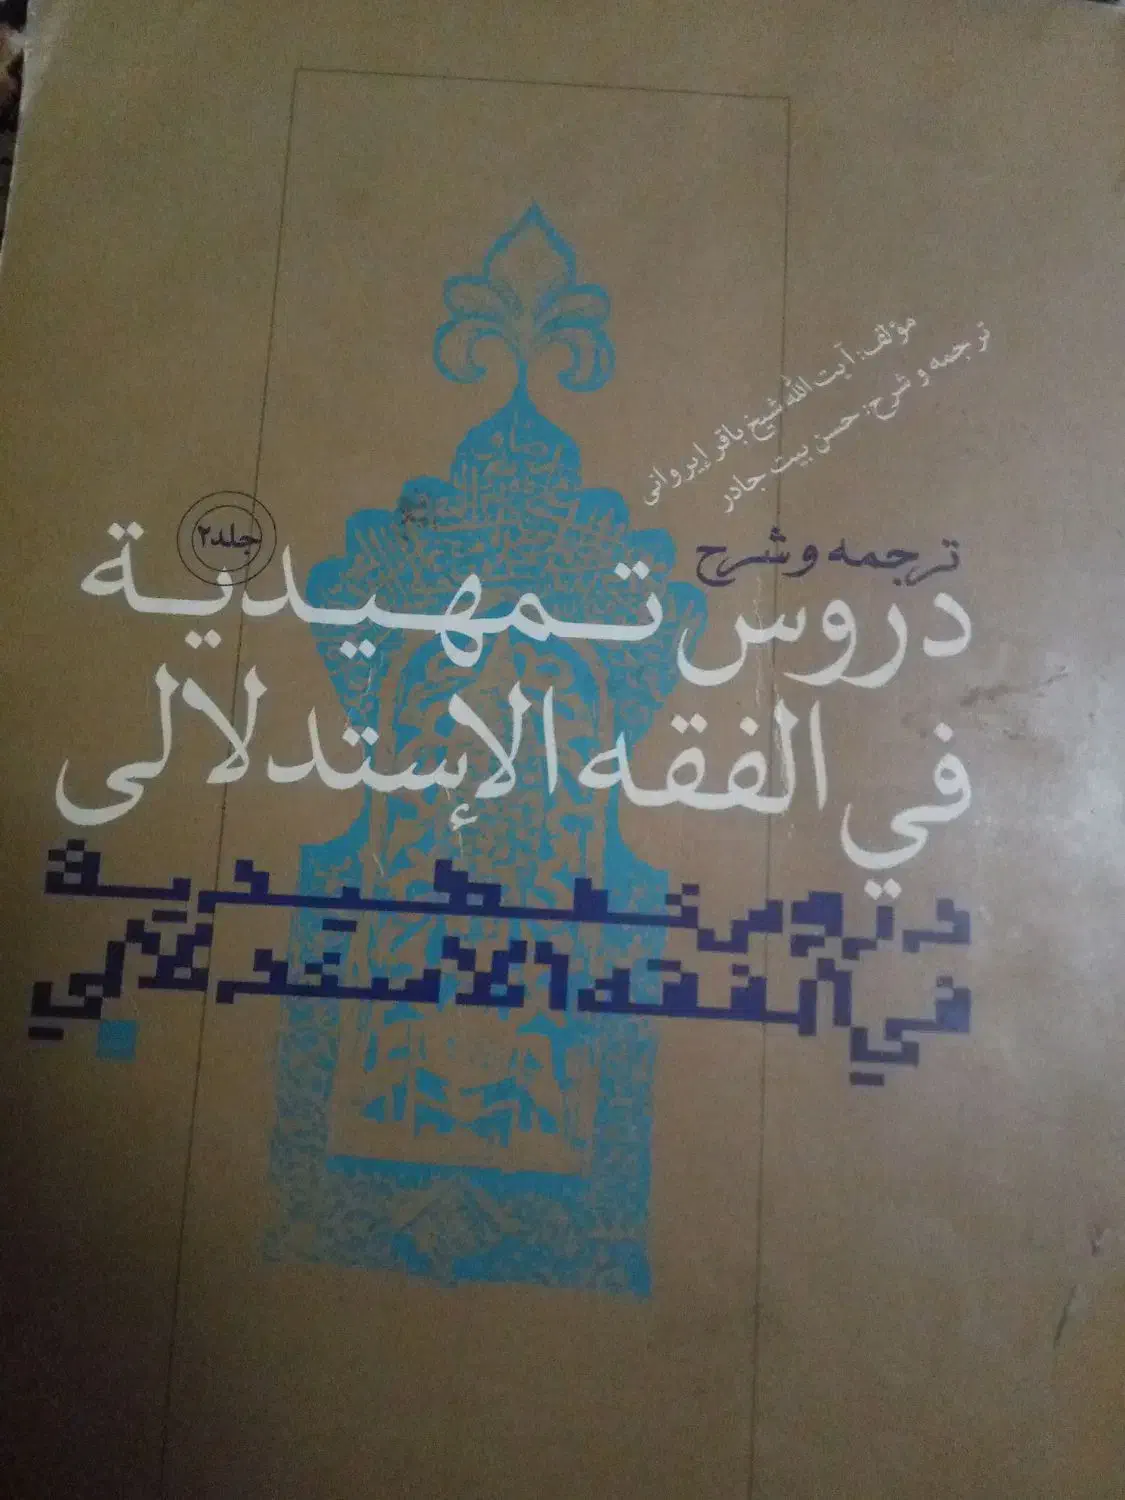 مؤلف: آیت الله شیخ باقر إیروانی
ترجمه و شرح: حسن بیت جادر
ترجمه و شرح
جلد ۲
دروس تمهيدية
في الفقه الإستدلالى
دروس تمهيدية
في الفقه الاستدلالي